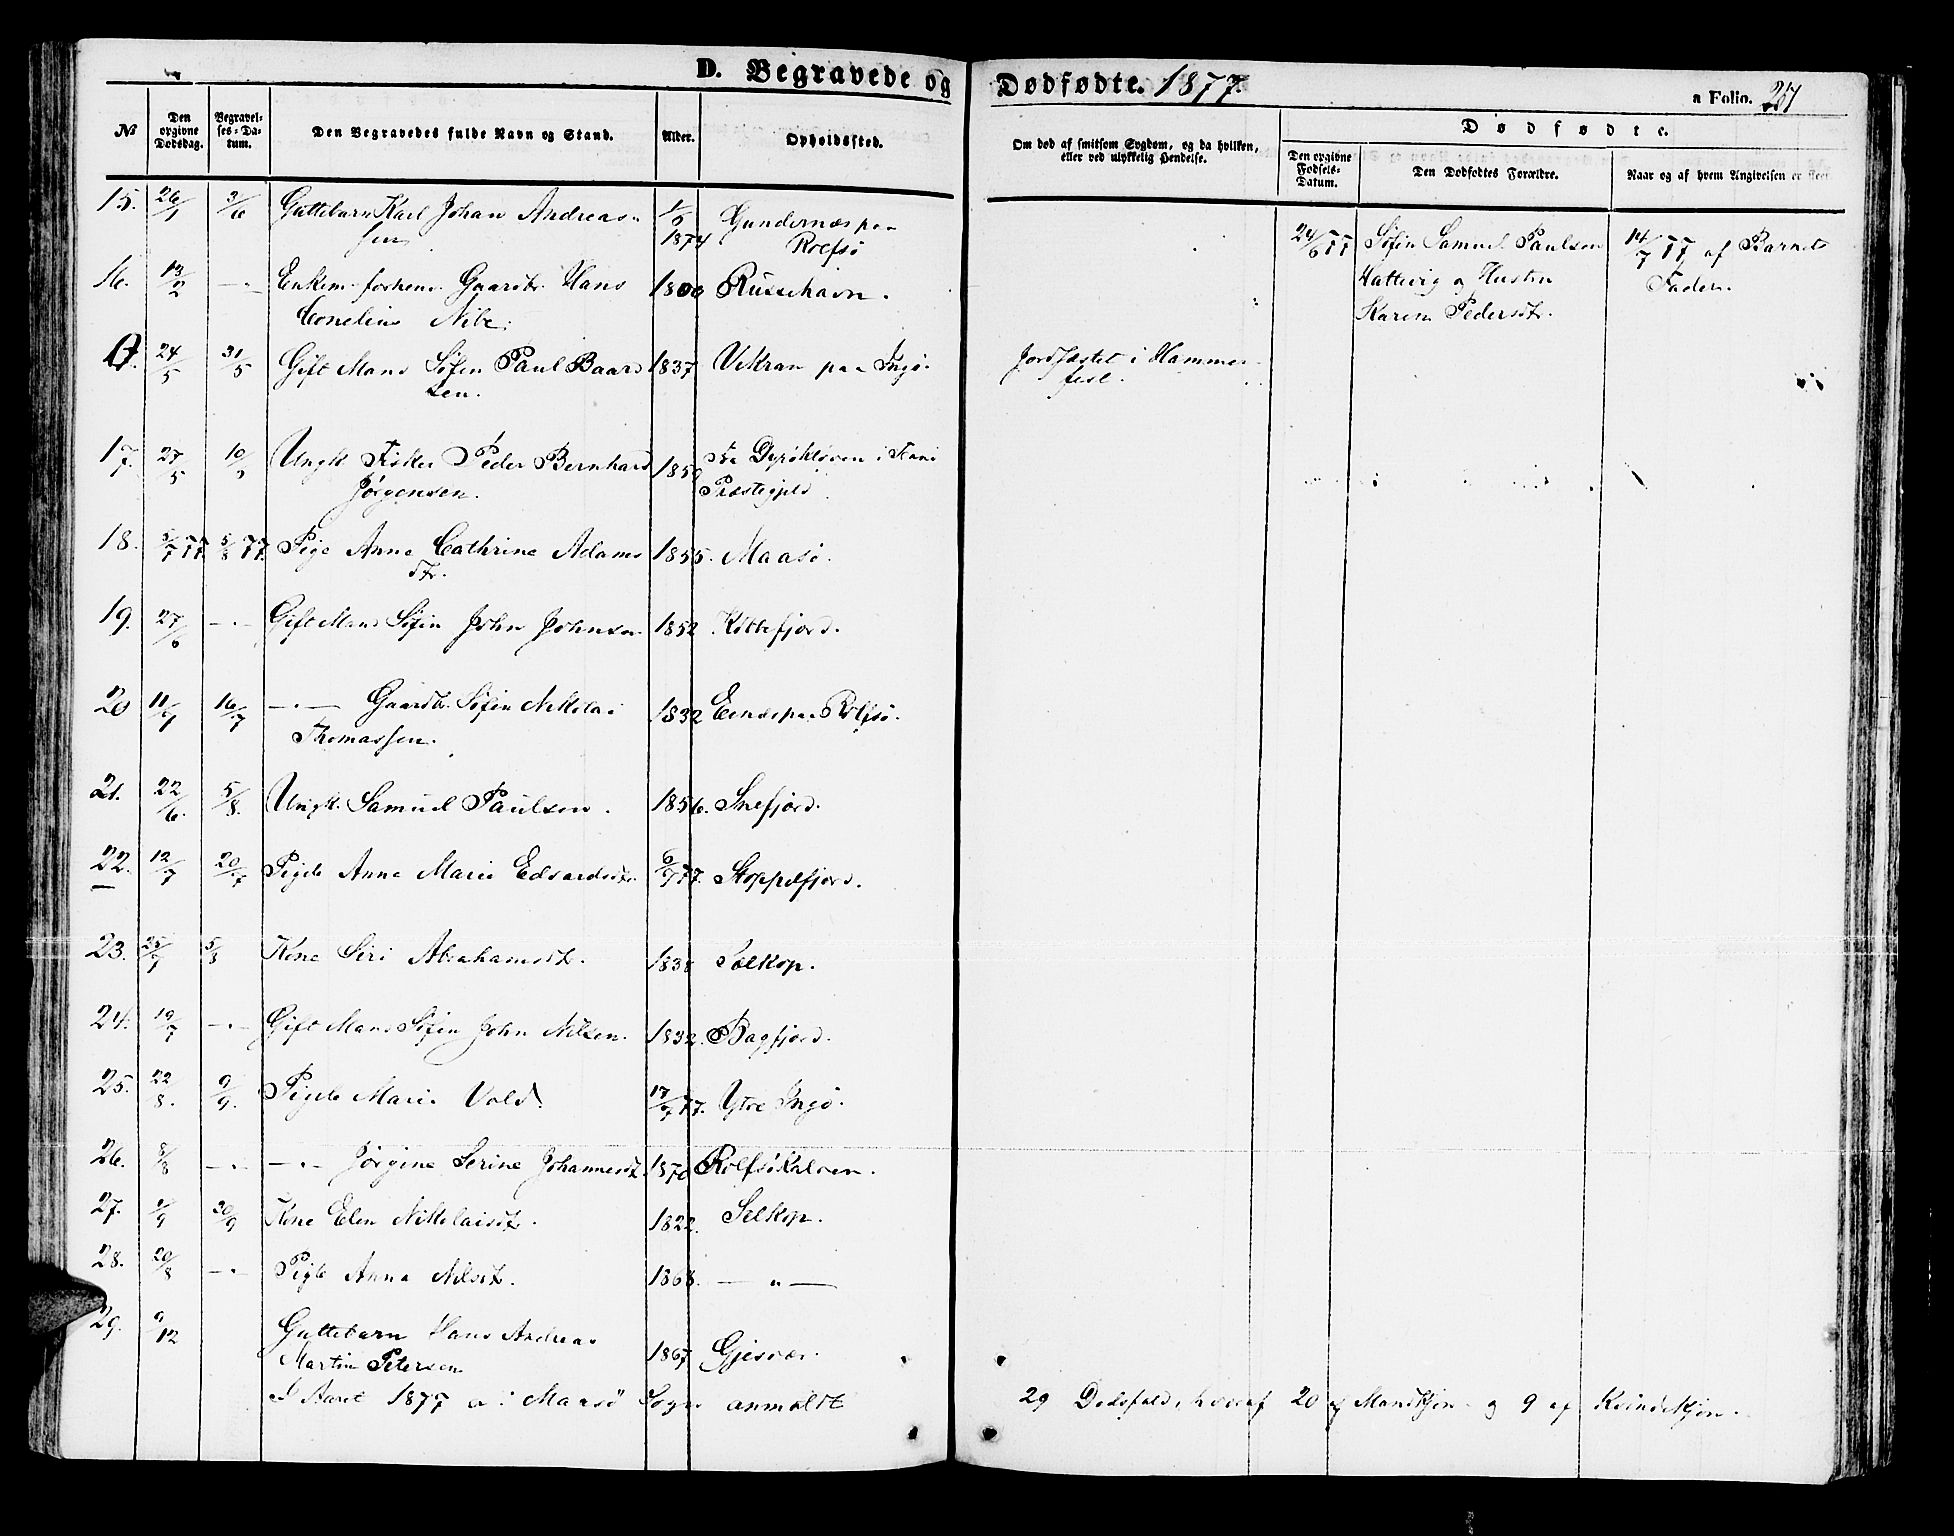 D. Begravede og Dødfødte. 1877.
a Folio. 217
No
Den opgivne Dødsdag.
Begravelses-Datum.
Den Begravedes fulde Navn og Stand.
Alder.
Opholdssted.
Om død af smitsom Sygdom, og da hvilken, eller ved ulykkelig Hendelse.
Dødfødte.
Den opgivne Fødsels-Datum.
Den Dødfødtes Forældre.
Naar og af hvem Angivelsen er skeet
15. 26/1 3/6 Guttebarn Karl Johan Andreas- 1874 Gundernæs paa
sen Rolfsø
24/6 77 Søfin Samuel Paulsen 14/7 77 af Barnets
Hattevig og Hustru Fader.
Karen Pedersdtr.
16. 13/2 -"- Enkem. forhenv. Gaardbr. Hans 1800 Russehavn.
Conelius Nibe.
24/5 31/5 Gift Mand Søfin Paul Baard 1837 Vikran paa Ingø. Jordfæstet i Hammer-
sen. fest.
17. 27/5 10/ Ungk. Fisker Peder Bernhard fra i
Jørgensen. Præstegjeld
18. 77 5/8 77. Pige Anna Cathrine Adams 1855. Maasø.
dtr.
19. 27/6 -"- Gift Mand Søfin John Johnsen. 1852 Kobbefjord.
20 16/7 -"- Gaardbr. Søfin Nikolai 1832 paa Rolfsø.
Thomassen.
21. 22/6. 5/8. Ungk. Samuel Paulsen. 1856. Snefjord.
22. 12/7 20/7 Pigeb Anna Marie Edvardsdtr. 77. Stoppelfjord.
23. 5/8 Kone Siri Abrahamsdtr. 1838 Selkop.
24. 19/7 -"- Gift Mand Søfin John Nilsen. 1832. Bagfjord.
25. 22/8. 9/9. Pigeb Marie Vold. 17/7 77. Ytre Ingø.
26. 8/8 -"- -"- Jørgine Serine Johannesdtr. 1870 Rolfsøhalvøen.
27. 2/9 30/9 Kone Elen Nikolaisdtr. 1822. Selkop.
28. 20/8 -"- Pigeb Anna Nilsdtr. 1868. -"-
29. 9/12 Guttebarn Hans Andreas
Martin Petersen 1867 Gjesvær.
I Aaret 1877 er i Maasø Sogn anmeldt 29 Dødsfald, hvoraf 20 af Mandkjøn og 9 af Kvindekjøn.